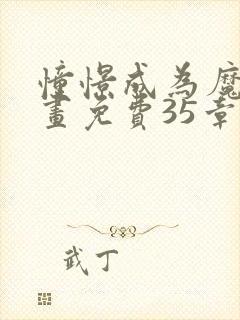 憧憬成為魔
畫免費35章
武丁